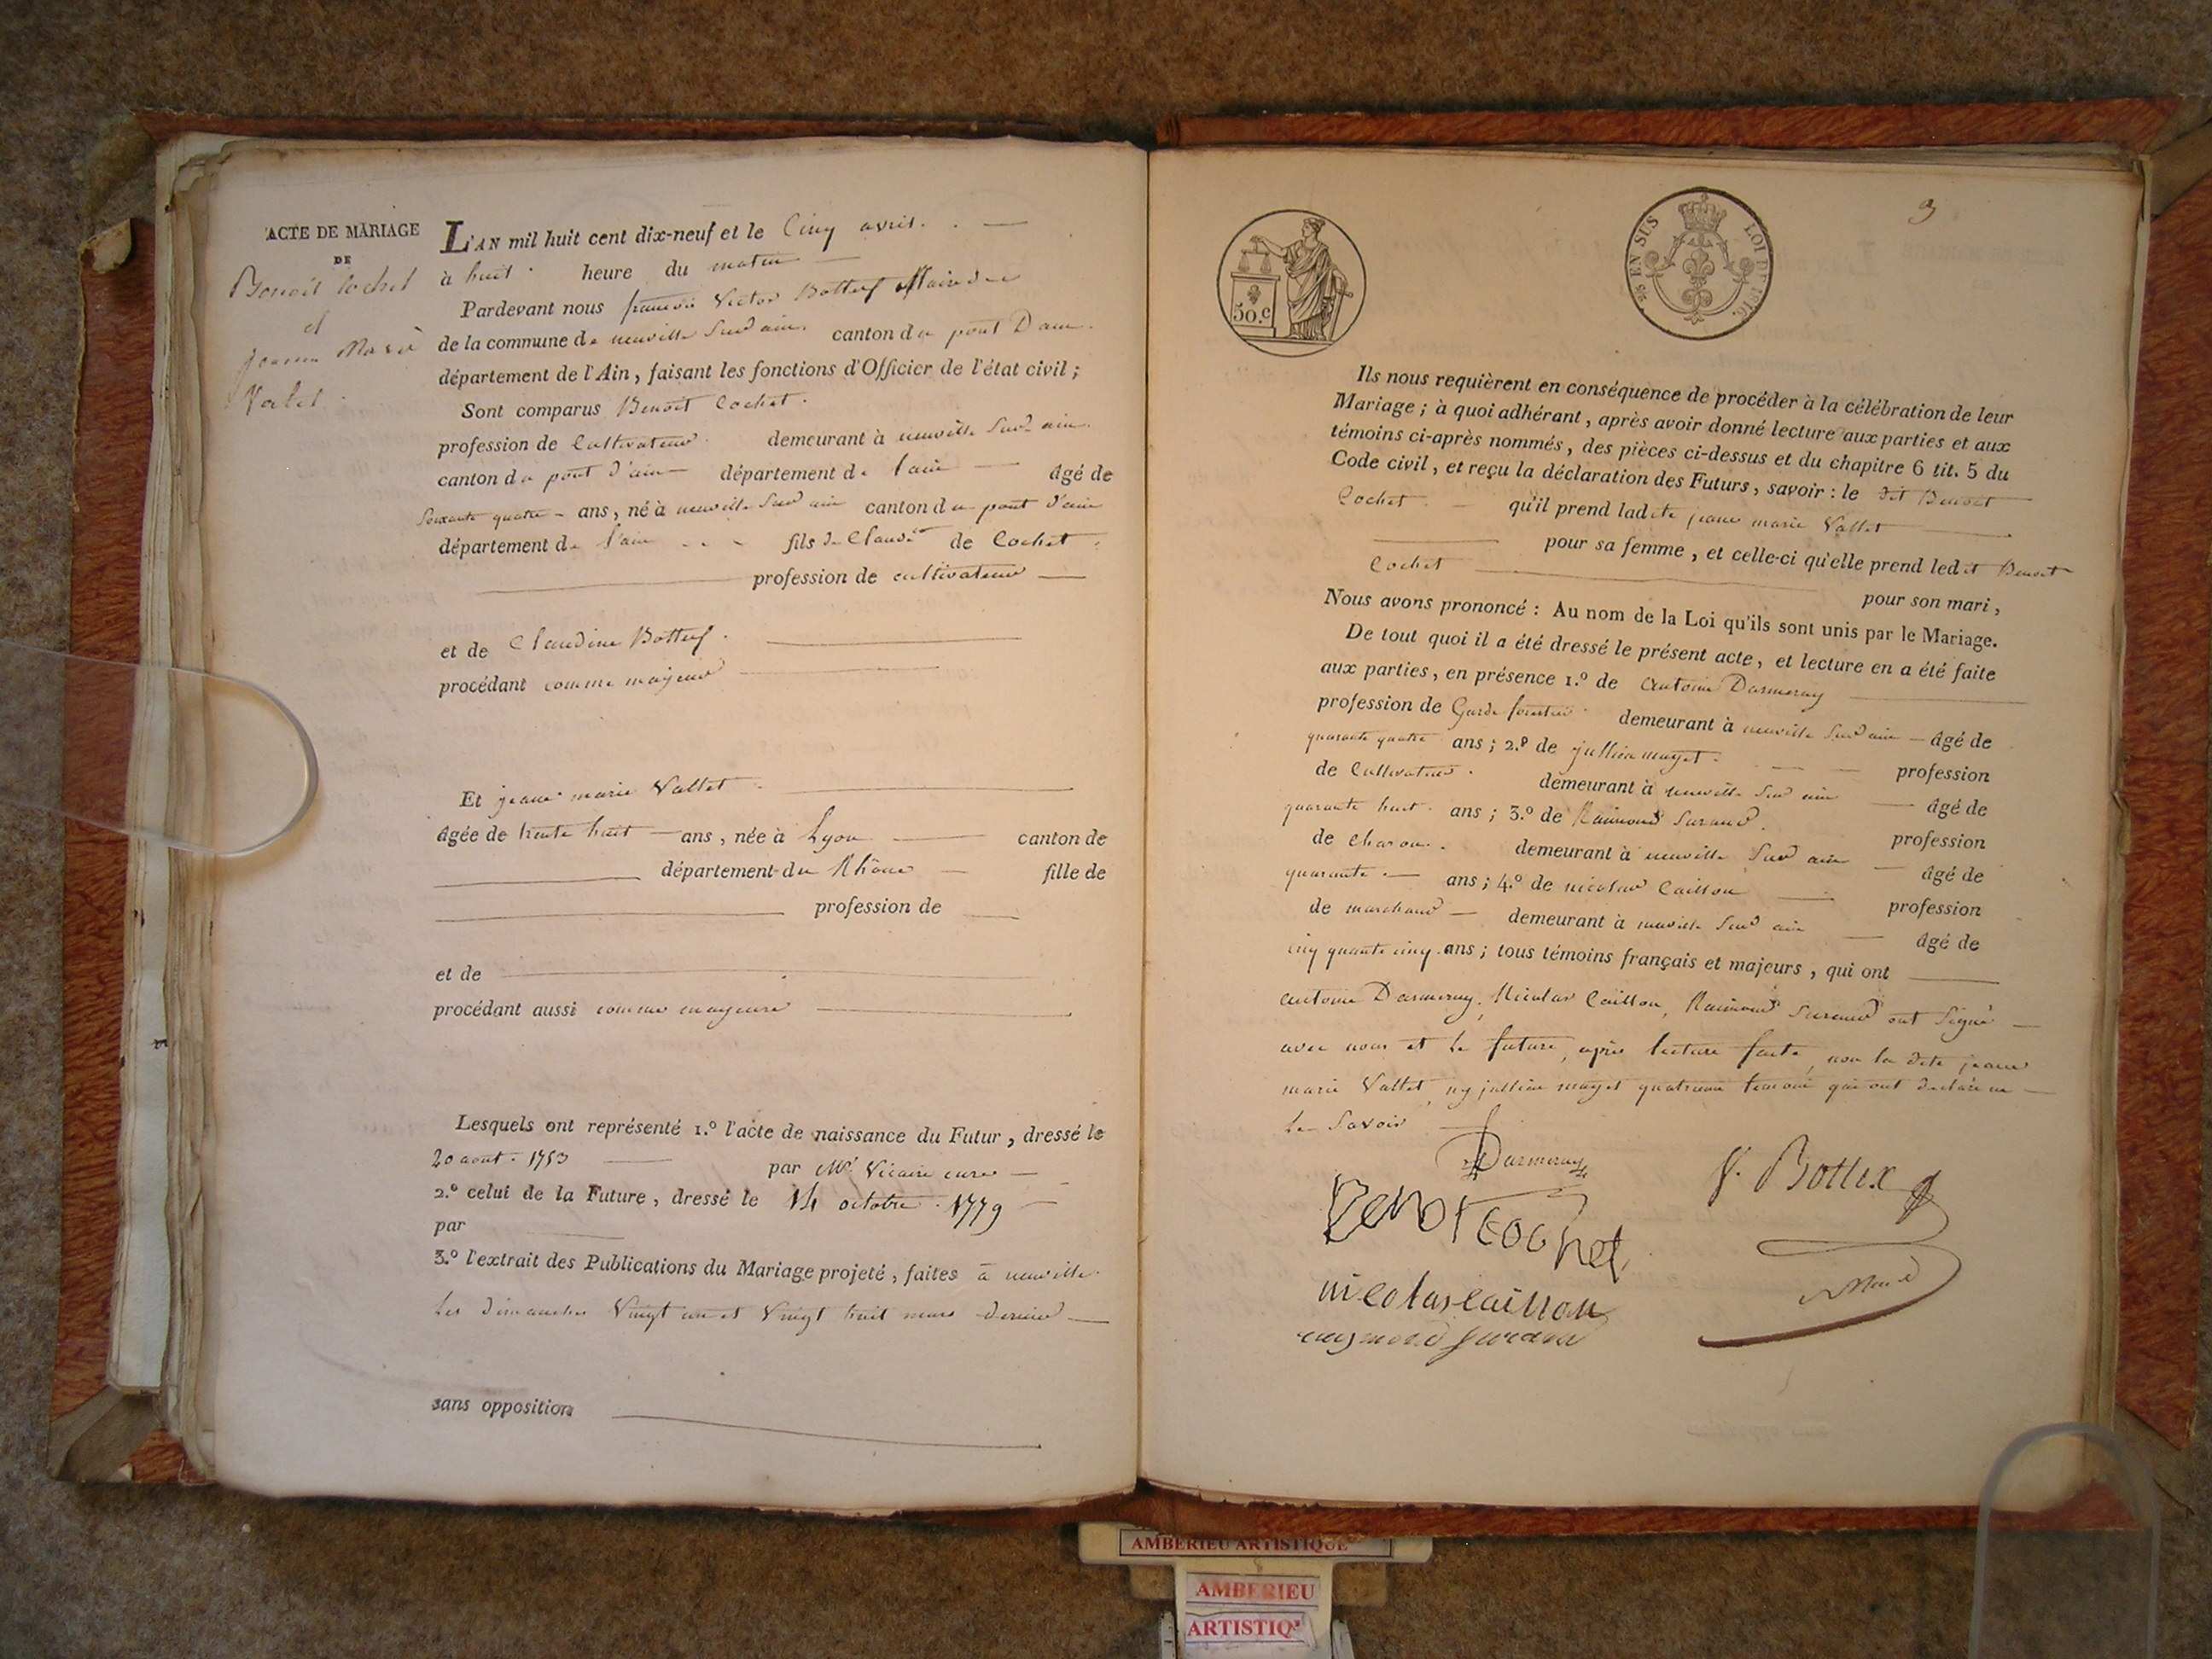 ACTE DE MARIAGE
DE
Benoit Cochet
et
jeanne Marie
Valet
L'AN mil huit cent dix-neuf et le Cinq avril.
à huit heure du matin
Pardevant nous françois Victor Bottex Maire de
de la commune de neuville Sur ain canton du pont Dain
département de l'Ain, faisant les fonctions d'Officier de l'état civil;
Sont comparus Benoit Cochet
profession de Cultivateur demeurant à neuville Sur ain
canton du pont d'ain département de l'ain âgé de
Soixante quatre ans, né à neuville Sur ain canton du pont d'ain
département de l'ain fils de Claude de Cochet
profession de cultivateur
et de Claudine Bottex
procédant comme majeur
Et jeane marie Vallet
âgée de trente huit ans, née à Lyon canton de
département du Rhône fille de
profession de
et de
procédant aussi comme majeure
Lesquels ont représenté 1.º l'acte de naissance du Futur, dressé le
20 aout 1753 par Mr. Vicaire curé
2.º celui de la Future, dressé le 14 octobre 1779
par
3.º l'extrait des Publications du Mariage projeté, faites à neuville
les dimanches Vingt un et Vingt huit mars dernier
sans opposition
3
50.c
EN SUS
LOI DE 1816.
Ils nous requièrent en conséquence de procéder à la célébration de leur
Mariage; à quoi adhérant, après avoir donné lecture aux parties et aux
témoins ci-après nommés, des pièces ci-dessus et du chapitre 6 tit. 5 du
Code civil, et reçu la déclaration des Futurs, savoir: le dit Benoit
Cochet qu'il prend ladite jeane marie Vallet
pour sa femme, et celle-ci qu'elle prend ledit Benoit
Cochet pour son mari,
Nous avons prononcé: Au nom de la Loi qu'ils sont unis par le Mariage.
De tout quoi il a été dressé le présent acte, et lecture en a été faite
aux parties, en présence 1.º de Antoine Darmeray
profession de Garde forestier demeurant à neuville Sur ain âgé de
quarante quatre ans; 2.º de jullien mayet profession
de Cultivateur demeurant à neuville Sur ain âgé de
quarante huit ans; 3.º de Raimond Surand profession
de charon demeurant à neuville Sur ain âgé de
quarante ans; 4.º de nicolas Caillon profession
de marchand demeurant à neuville Sur ain âgé de
cinq quante cinq ans; tous témoins français et majeurs, qui ont
antoine Darmeray, Nicolas Caillon, Raimond Surand ont Signé
avec nous et le future, après lecture faite, non la dite jeane
marie Vallet, ny jullien mayet quatrieme temoin qui ont declaré ne
le Savoir
Darmeray
V. Bottex
Benoit Cochet
nicolas caillon
raymond Surand
AMBERIEU ARTISTIQUE
AMBERIEU
ARTISTIQ